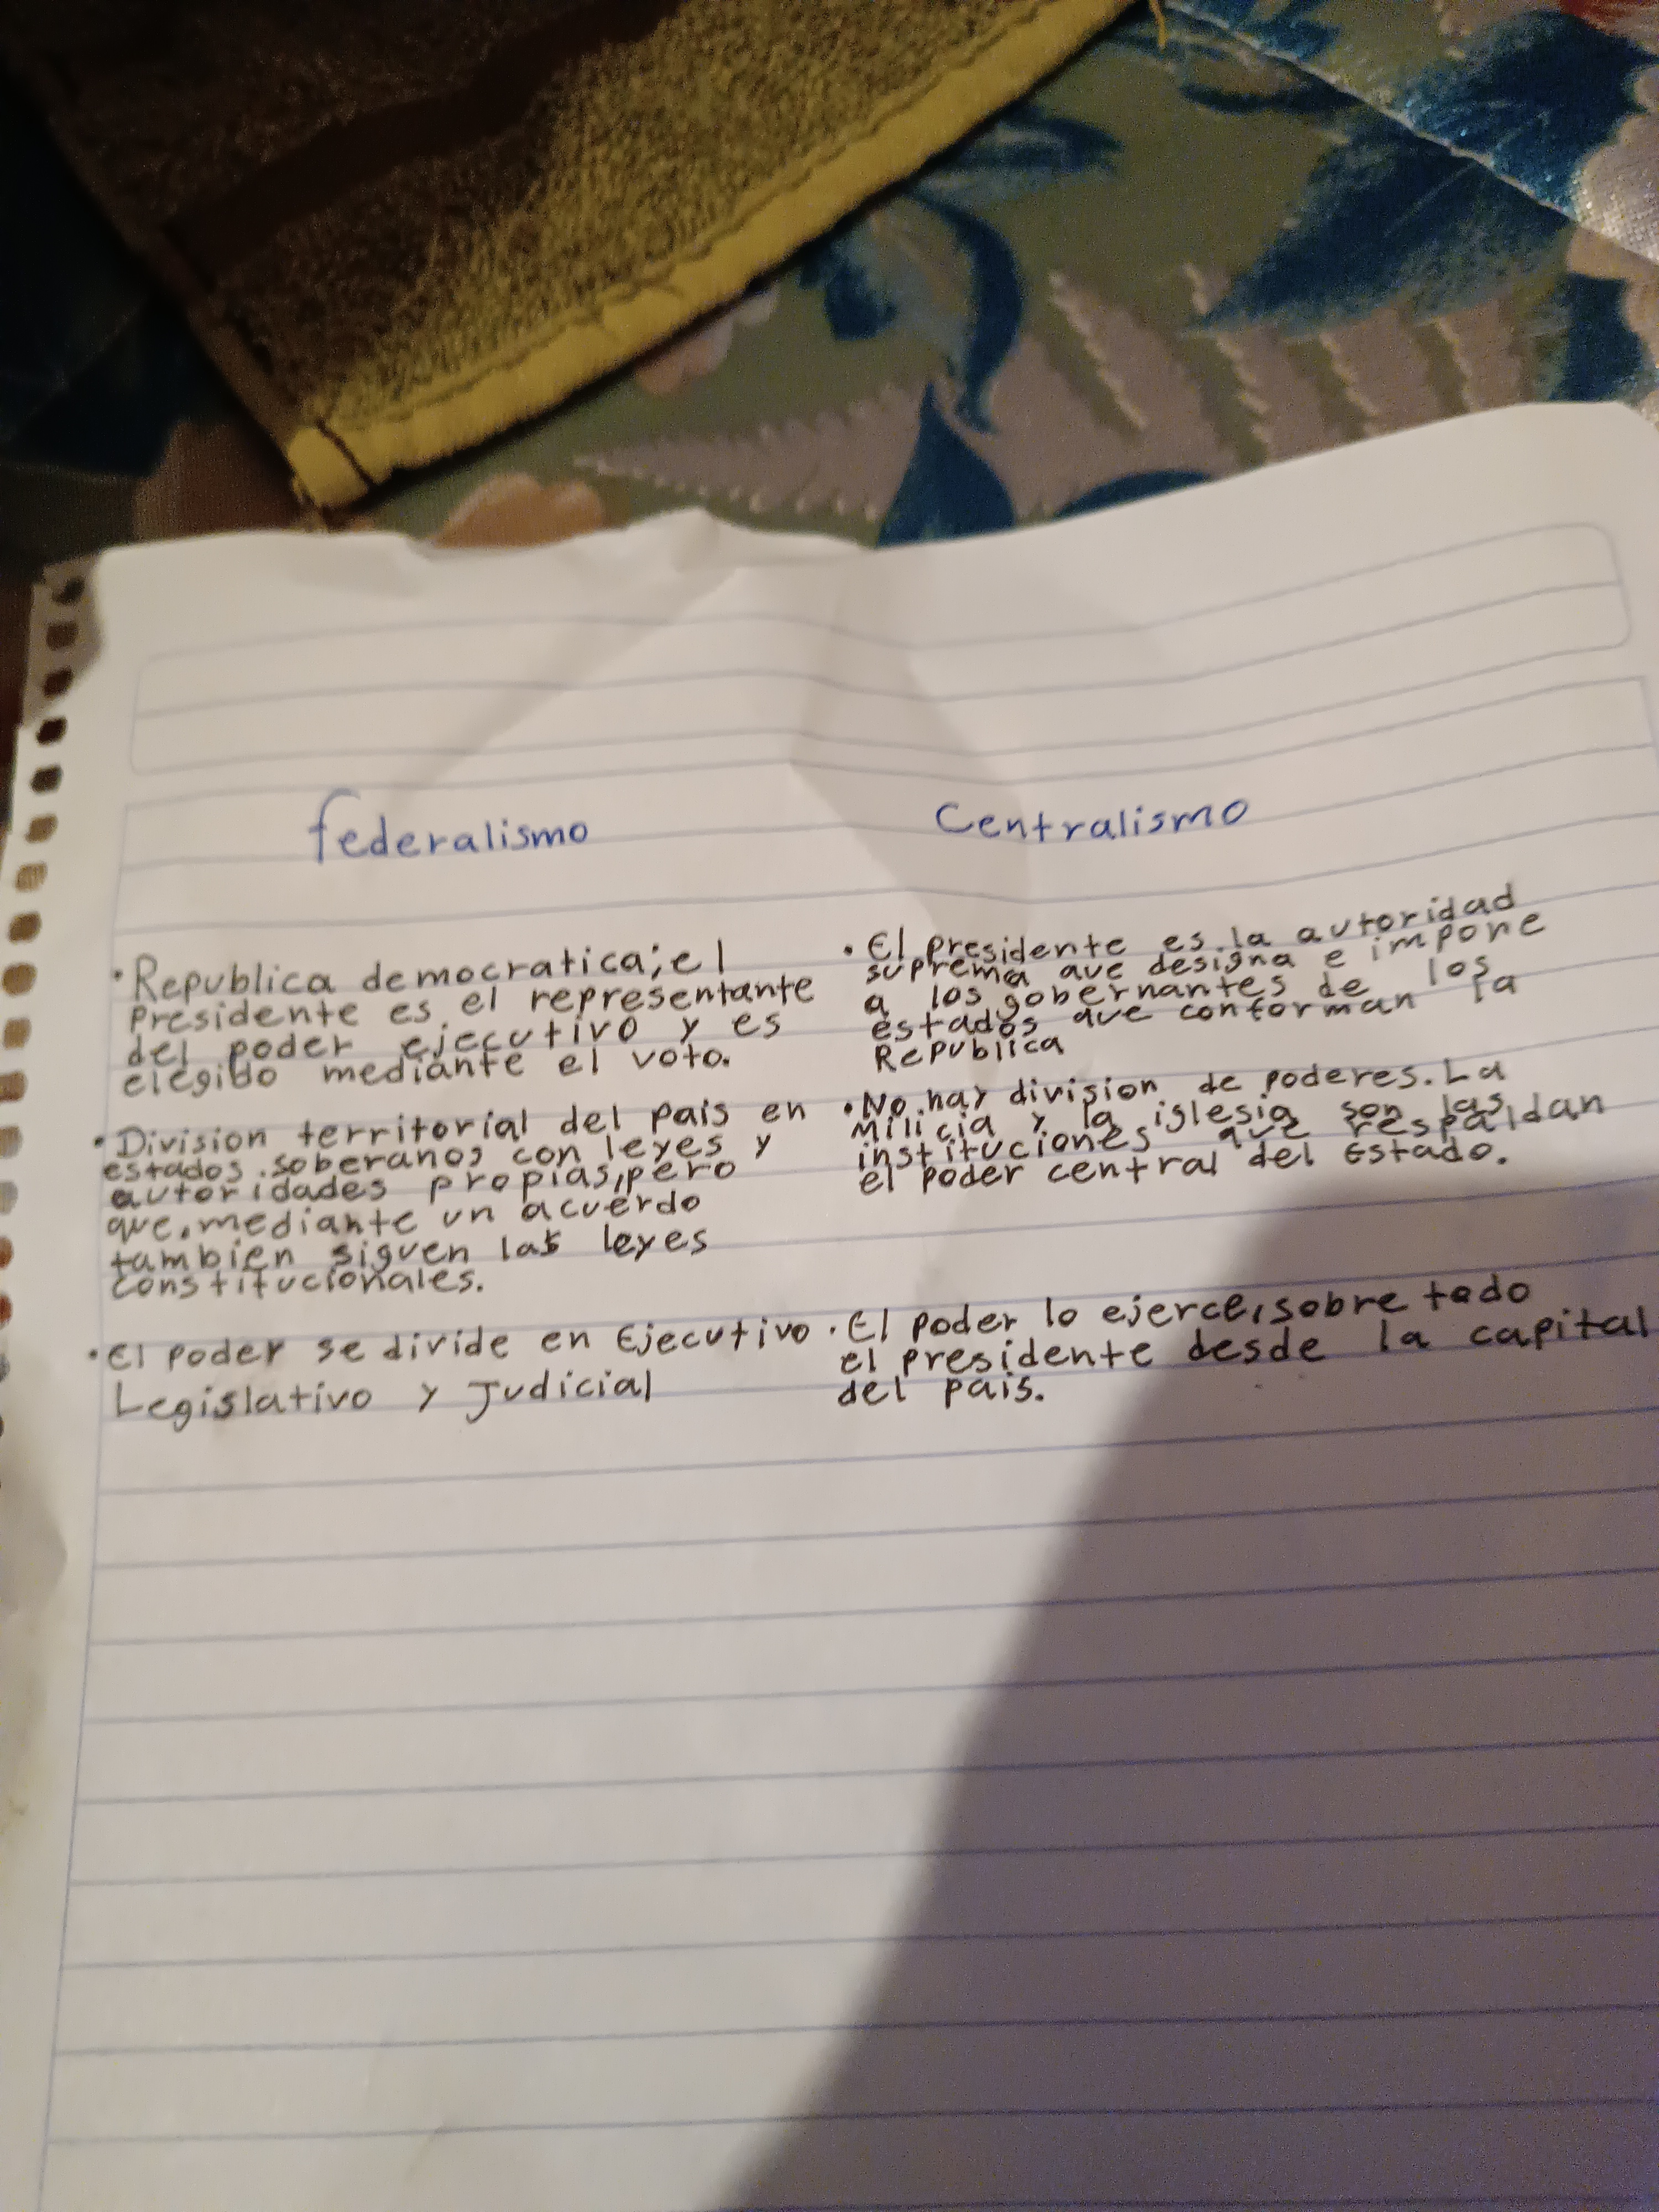 federalismo
Centralismo
• Republica democratica; el
Presidente es el representante
del poder ejecutivo y es
elegido mediante el voto.
• Division territorial del pais en
estados soberanos con leyes y
autoridades propias, pero
que, mediante un acuerdo
tambien siguen las leyes
constitucionales.
• El poder se divide en Ejecutivo
Legislativo y Judicial
• El presidente es la autoridad
suprema que designa e impone
a los gobernantes de los
estados que conforman la
Republica
• No hay division de poderes. La
Milicia y la iglesia son las
instituciones que respaldan
el poder central del Estado.
• El poder lo ejerce, sobre todo
el presidente desde la capital
del pais.